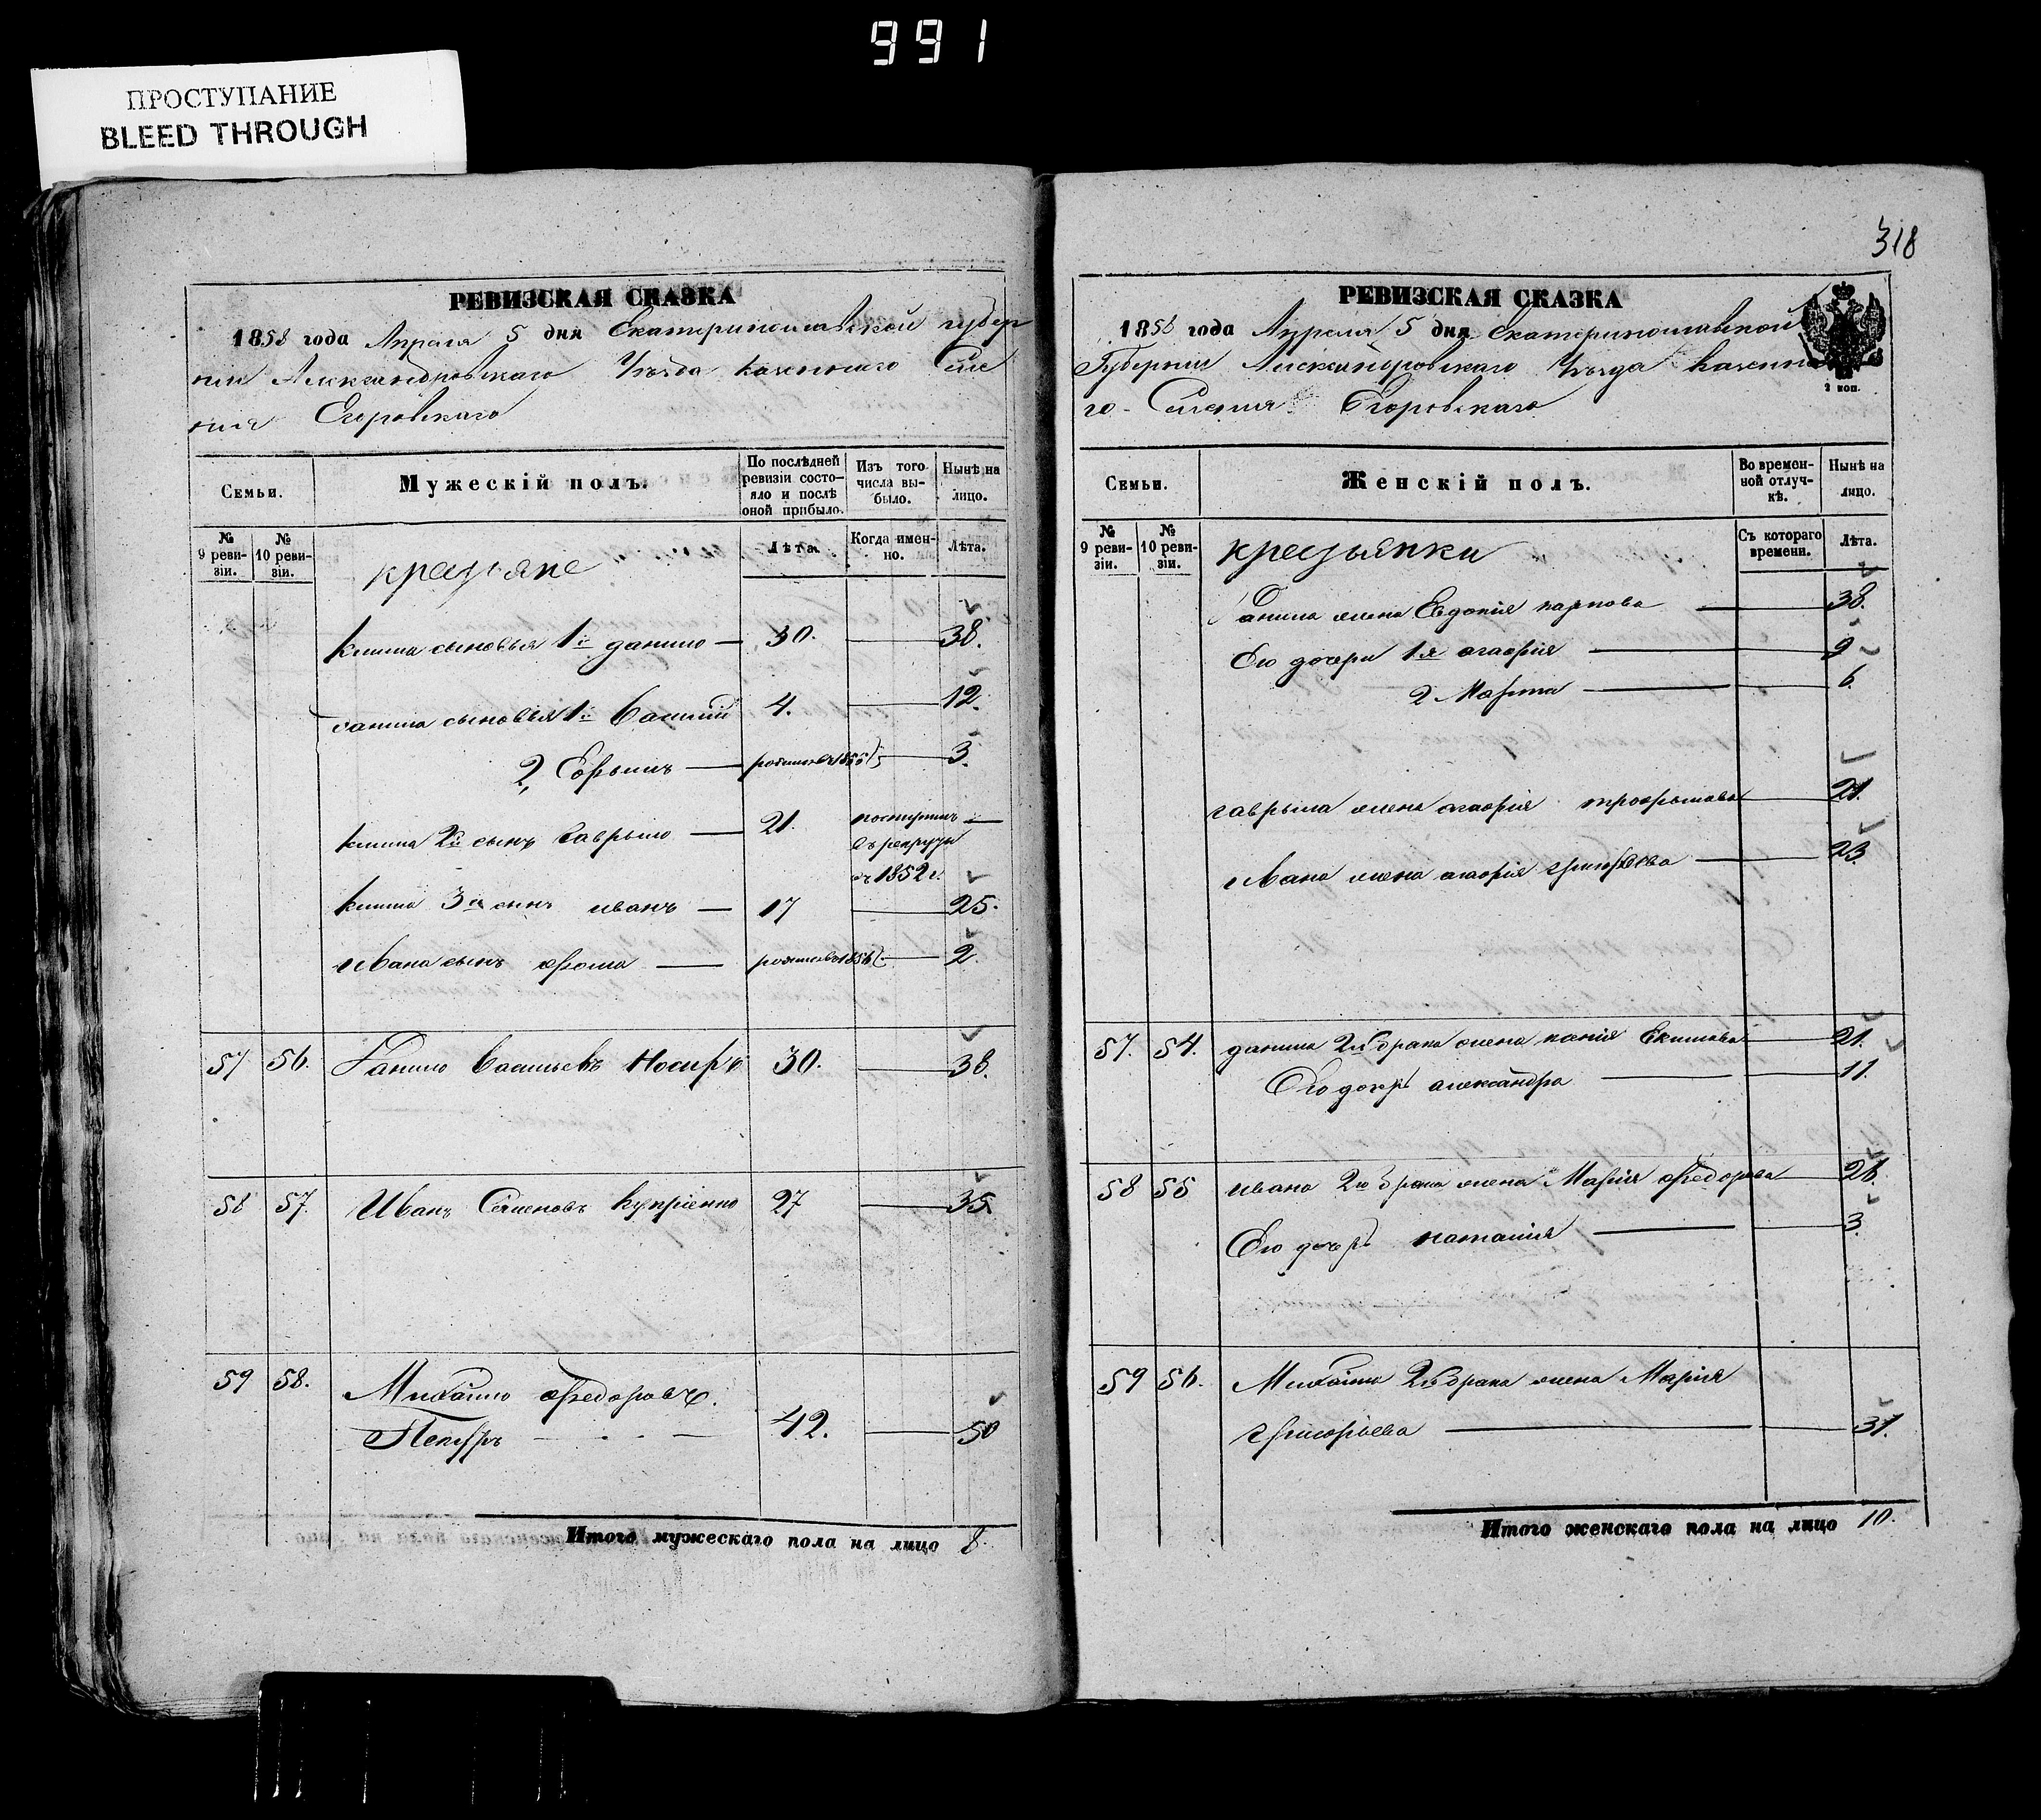 991
ПРОСТУПАНИЕ
BLEED THROUGH
РЕВИЗСКАЯ СКАЗКА
1858 года Апреля 5 дня Екатеринославской губер
нии Александровскаго Уѣзда казеннаго Селе
ния Егоровскаго
Семьи.
Мужескій полъ.
По послѣдней ревизіи состояло и послѣ оной прибыло.
Изъ того числа выбыло.
Нынѣ на лицо.
№ 9 ревизіи.
№ 10 ревизіи.
крестьяне
Лѣта.
Когда именно.
Лѣта.
Клима сыновья 1й данило — 30. — 38.
данила сыновья 1й Василий 4. — 12.
2, Ефрымъ — родился въ 1855 — 3.
клима 2й сынъ Гаврыло — 21. поступилъ —
въ рекруты
въ 1852 г.
клима 3й сынъ иванъ — 17 — 25.
Ивана сынъ фома — родился въ 1856 — 2.
57 56. Данило Васильевъ Носирь 30. — 38.
58 57. Иванъ Семеновъ Купріенко 27 — 35.
59 58. Михайло Федоровъ
42. — 50
Итого мужескаго пола на лицо 8.
318
РЕВИЗСКАЯ СКАЗКА
1858 года Апреля 5 дня Екатеринославской
Губернии Александровскаго Уѣзда казенна
го Селения Егоровскаго
2 коп.
Семьи.
Женскій полъ.
Во временной отлучкѣ.
Нынѣ на лицо.
№ 9 ревизіи.
№ 10 ревизіи.
крестьянки
Съ котораго времени.
Лѣта.
Данила жена Евдокія карпова — 38.
Его дочери 1я агафія — 9
2 Марфа — 6.
гаврыла жена агафія трофымова — 21.
ивана жена агафія григорьева — 23.
57. 54. данила 2го брака жена Екимова — 21.
Его дочерь александра — 11.
58 55 ивана 2го брака жена Марія федорова — 26.
Его дочерь наталія — 3.
59 56. Михайла 2го брака жена Марія
григорьева — 31.
Итого женскаго пола на лицо 10.